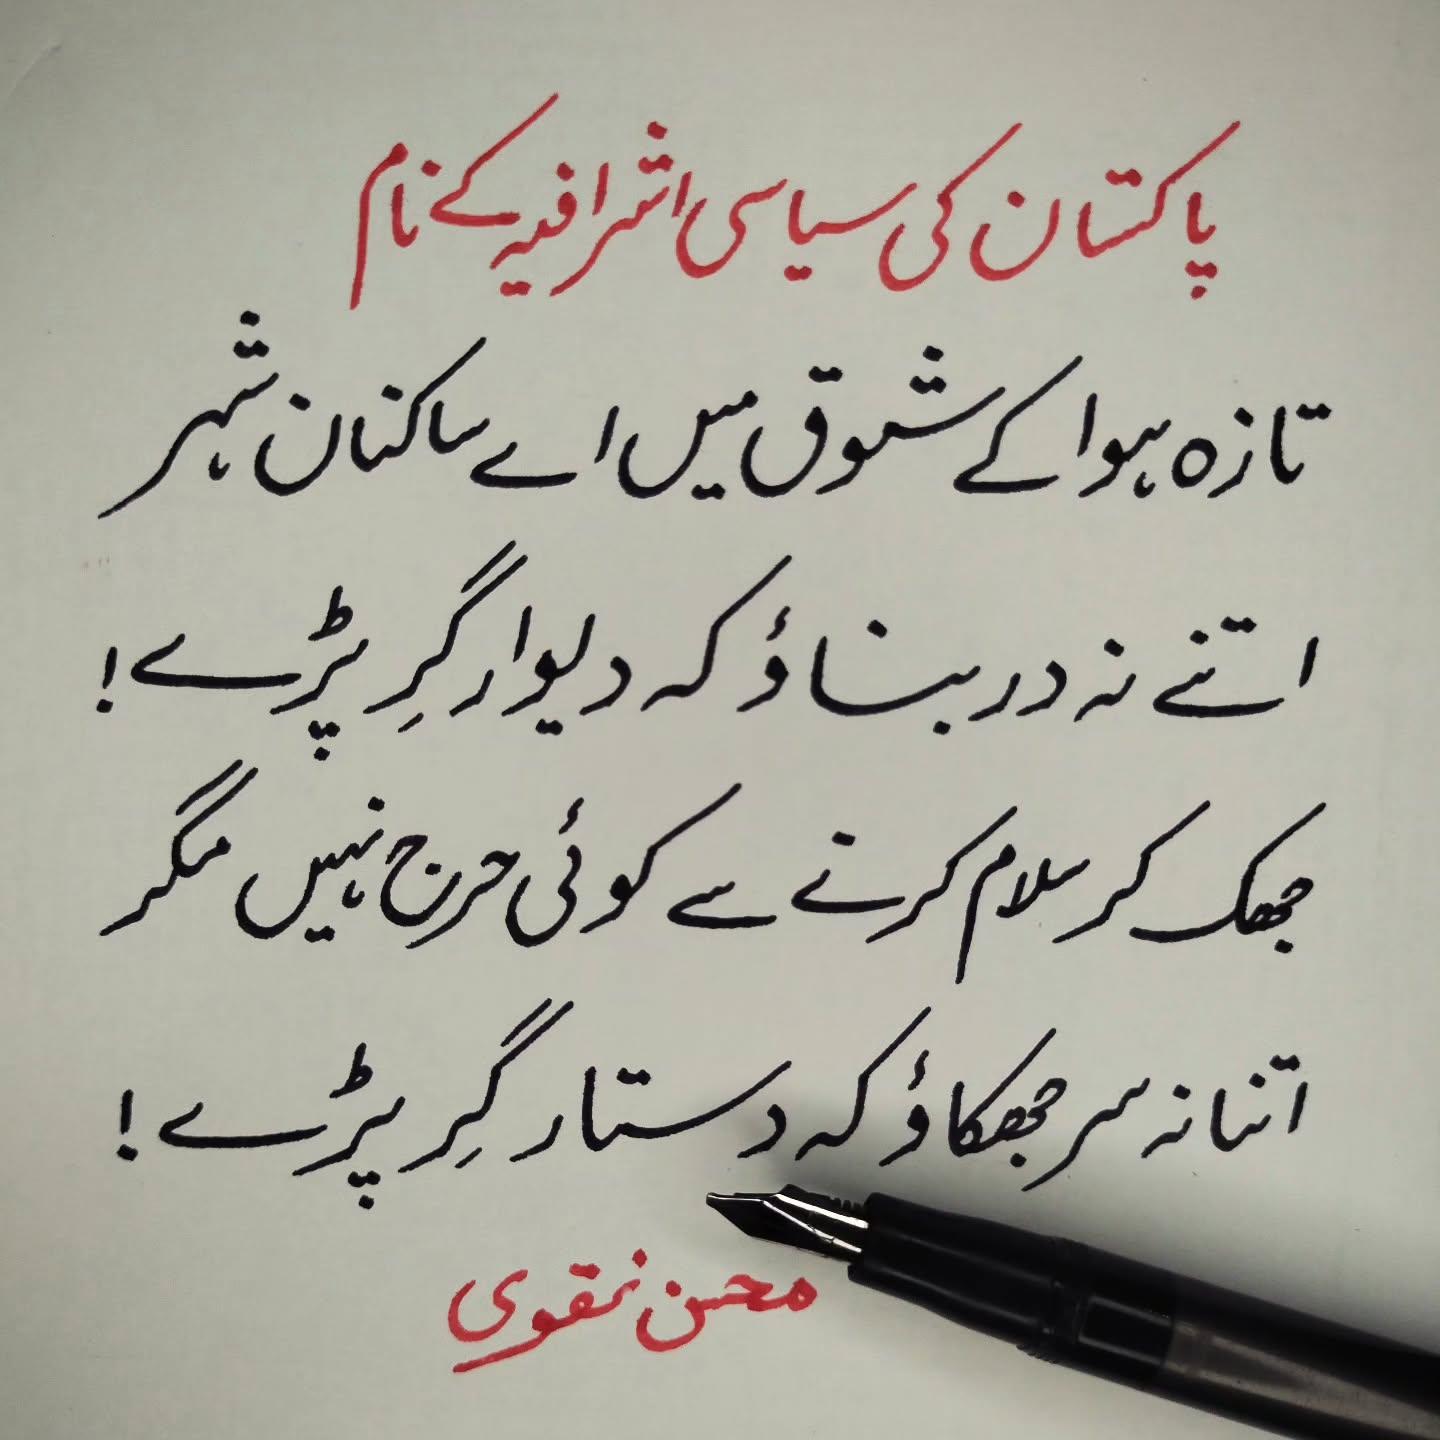 پاکستان کی سیاسی اشرافیہ کے نام
تازہ ہوا کے شوق میں اے ساکنان شہر
اتنے نہ در بناؤ کہ دیوار گِر پڑے!
جھک کر سلام کرنے سے کوئی حرج نہیں مگر
اتنا نہ سر جھکاؤ کہ دستار گِر پڑے!
محسن نقوی